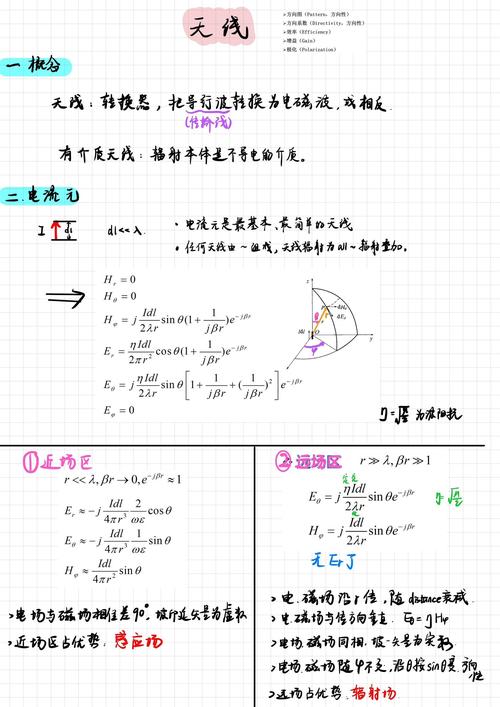 天线
➢方向图（Pattern，方向性）
➢方向系数（Directivity，方向性）
➢效率（Efficiency）
➢增益（Gain）
➢极化（Polarization）
一 概念
天线：转换器，把导行波转换为电磁波，或相反.
(传输线)
有介质天线：辐射本体是不导电的介质。
二.电流元
I dl dl<<λ.
· 电流元是最基本、最简单的天线
· 任何天线由~组成，天线辐射为all~辐射叠加。
H_r = 0
H_θ = 0
H_φ = j Idl/2λr sinθ(1+1/jβr)e^{-jβr}
E_r = ηIdl/2πr² cosθ(1+1/jβr)e^{-jβr}
E_θ = j ηIdl/2λr sinθ[1+1/jβr+(1/jβr)²]e^{-jβr}
E_φ = 0
为波阻抗
①近场区
r<<λ,βr→0,e^{-jβr}≈1
E_r ≈ -j Idl/4πr³ 2/ωε cosθ
E_θ ≈ -j Idl/4πr³ 1/ωε sinθ
H_φ ≈ Idl/4πr² sinθ
➢电场与磁场相位差90°，坡印廷矢量为虚数
➢近场区占优势：感应场
②远场区 r≫λ,βr≫1
E_θ = j ηIdl/2λr sinθe^{-jβr}
H_φ = j Idl/2λr sinθe^{-jβr}
无Er
➢电.磁场沿r传，随distance衰减.
➢电.磁场与传方向垂直.
➢电场.磁场同相.坡~矢量为实数.
➢电场.磁场随φ不变，沿θ按sinθ变.方向性
➢远场占优势.辐射场